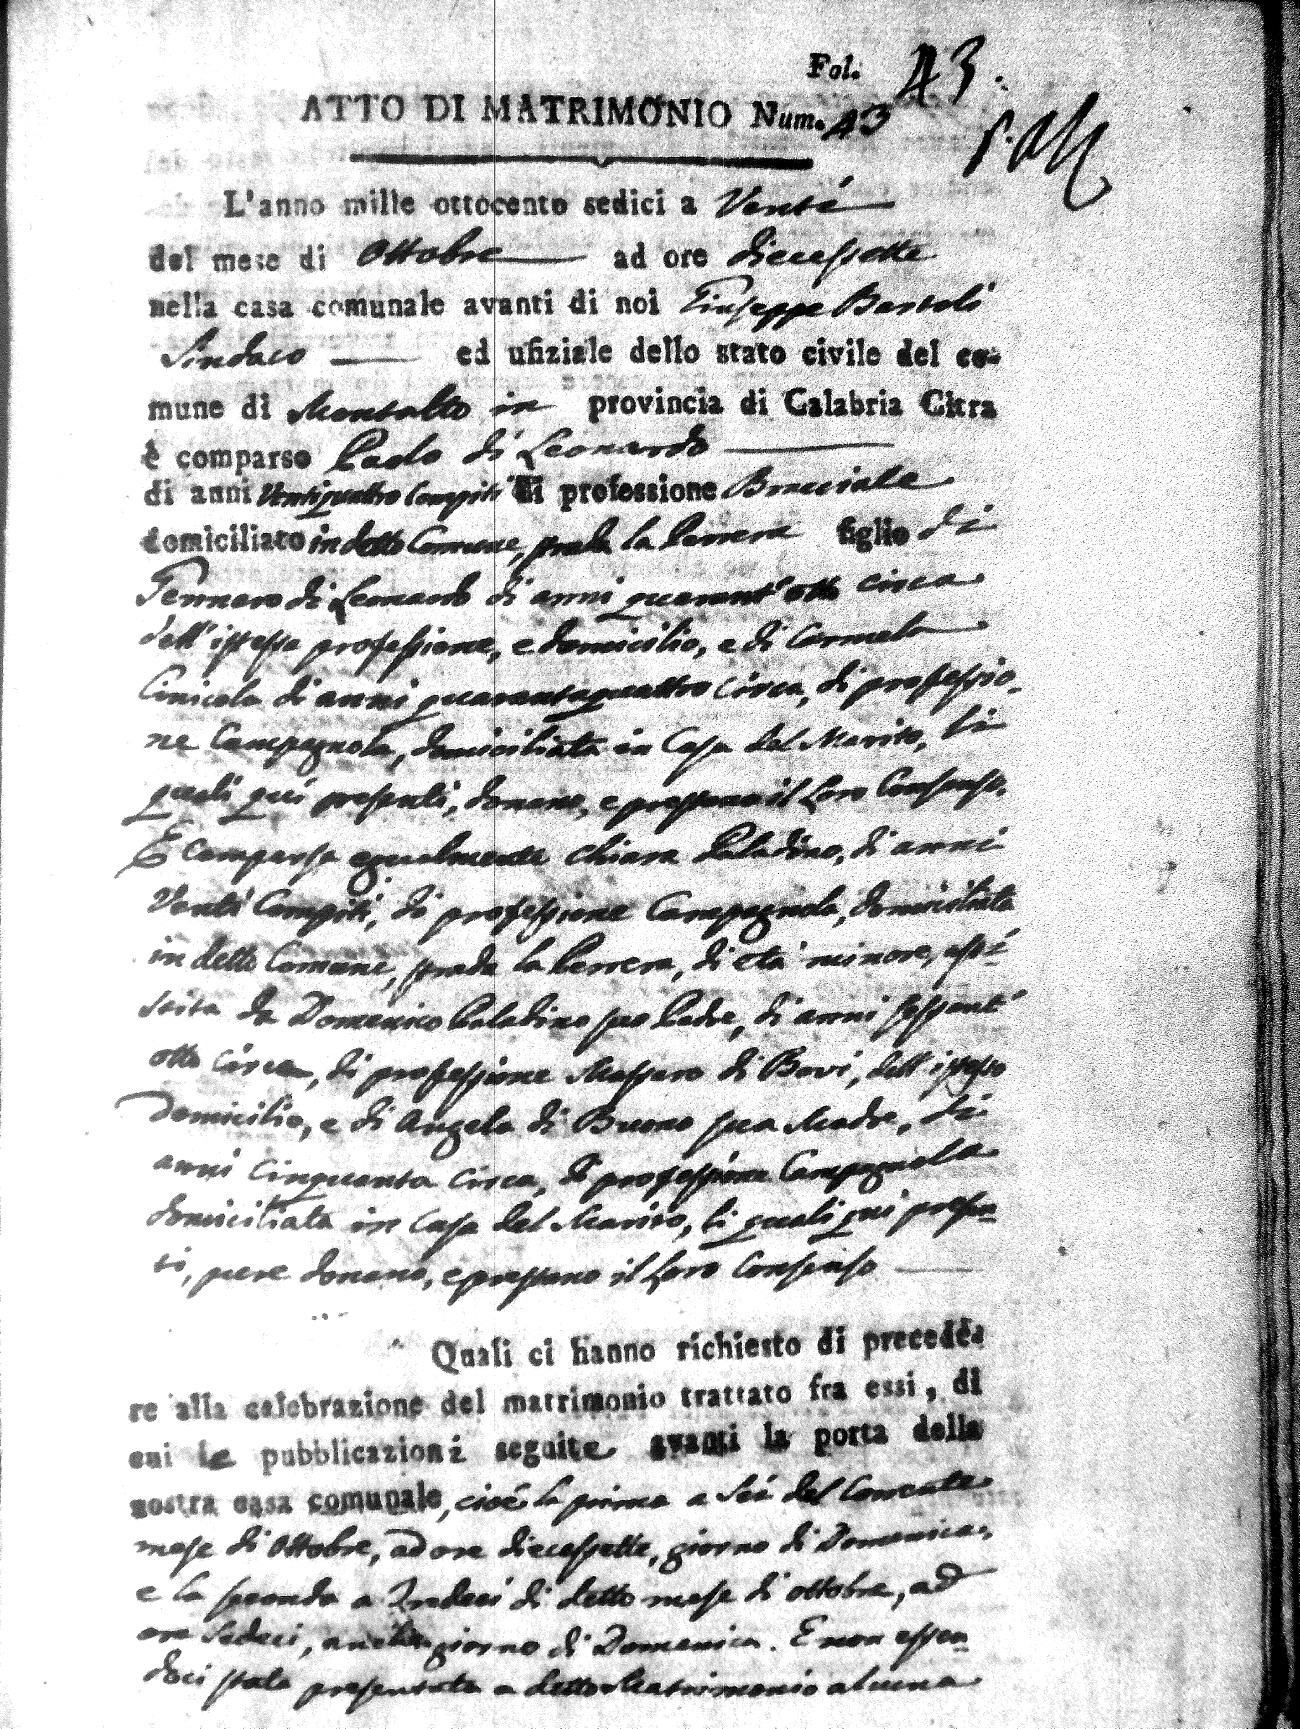 Fol. 43.
ATTO DI MATRIMONIO Num. 43
L'anno mille ottocento sedici a Venti
del mese di Ottobre ad ore diecessette
nella casa comunale avanti di noi Giuseppe Bartoli
Sindaco ed ufiziale dello stato civile del co-
mune di Montalto in provincia di Calabria Citra
è comparso Paolo di Leonardo
di anni Ventiquattro Compiti di professione Bracciale
domiciliato in detto Comune, strada la Perrera figlio di
Gennaro di Leonardo di anni quarant'otto circa
dell'istessa professione, e domicilio, e di Carmela
Cinicola di anni quarantaquattro circa, di professio-
ne Campagnola, domiciliata in Casa del Marito, li
quali quì presenti, donano, e prestano il Loro Consenso.
E comparsa egualmente Chiara Paladino, di anni
Venti Compiti, di professione Campagnola, domiciliata
in detto Comune, strada la Perrera, di età minore, assi=
stita da Domenico Paladino suo Padre, di anni sessant'
otto circa, di professione Massaro di Bovi, dell'istesso
Domicilio, e di Angela di Buono sua Madre, di
anni cinquanta circa, di professione Campagnola
domiciliata in Casa del Marito, li quali qui presen=
ti, pure donano, e prestano il Loro Consenso
Quali ci hanno richiesto di precede
re alla celebrazione del matrimonio trattato fra essi, di
cui le pubblicazioni seguite avanti la porta della
nostra casa comunale, cioè la prima a Sei del Corrente
mese di Ottobre, ad ore diecessette, giorno di Domenica,
e la seconda a Tredeci di detto mese di ottobre, ad
ore Sedeci, anche giorno di Domenica. E non essen=
doci stata presentata a detto Matrimonio alcuna